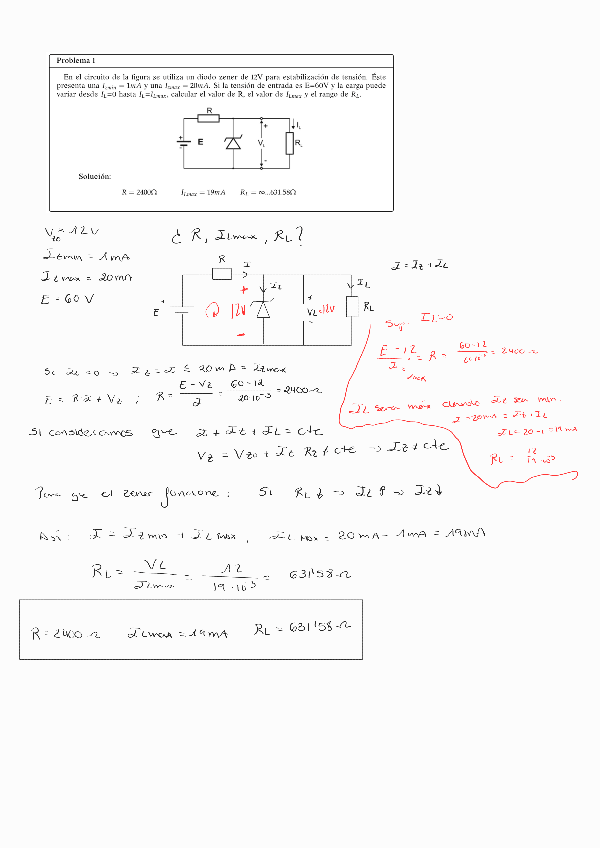 Problema 1
En el circuito de la figura se utiliza un diodo zener de 12V para estabilización de tensión. Éste
presenta una I_zmin = 1mA y una I_zmax = 20mA. Si la tensión de entrada es E=60V y la carga puede
variar desde I_L=0 hasta I_L=I_Lmax, calcular el valor de R, el valor de I_Lmax y el rango de R_L.
R
I_L
+
E
V_L
R_L
-
Solución:
R = 2400Ω I_Lmax = 19mA R_L = ∞...631.58Ω
V_zo = 12V
¿ R, I_Lmax, R_L?
I_zmin = 1mA
I_zmax = 20mA
E = 60 V
R
I
I = I_z + I_L
+
I_z
I_L
E
12V
V_L=12V
R_L
-
Sup. I_L=0
E - 12 / I_max = R = 60-12 / = 2400 Ω
Si I_L=0 → I_z = I ≤ 20mA = I_zmax
E = R·I + V_z ; R = E - V_z / I = 60-12 / 20·10^-3 = 2400Ω
I_L sera max cuando I_z sea min.
I = 20mA = I_z + I_L
I_L = 20-1 = 19 mA
R_L = 12 / 19·10^-3
Si consideramos que I_z + I_L = cte
V_z = V_zo + I_z R_z ≠ cte → I_z ≠ cte
Para que el zener funcione: Si R_L ↓ → I_L ↑ → I_z ↓
Asi: I = I_zmin + I_Lmax, I_L max = 20mA - 1mA = 19mA
R_L = V_L / I_Lmin = 12 / 19·10^-3 = 631'58Ω
R = 2400 Ω I_Lmax = 19mA R_L = 631'58 Ω